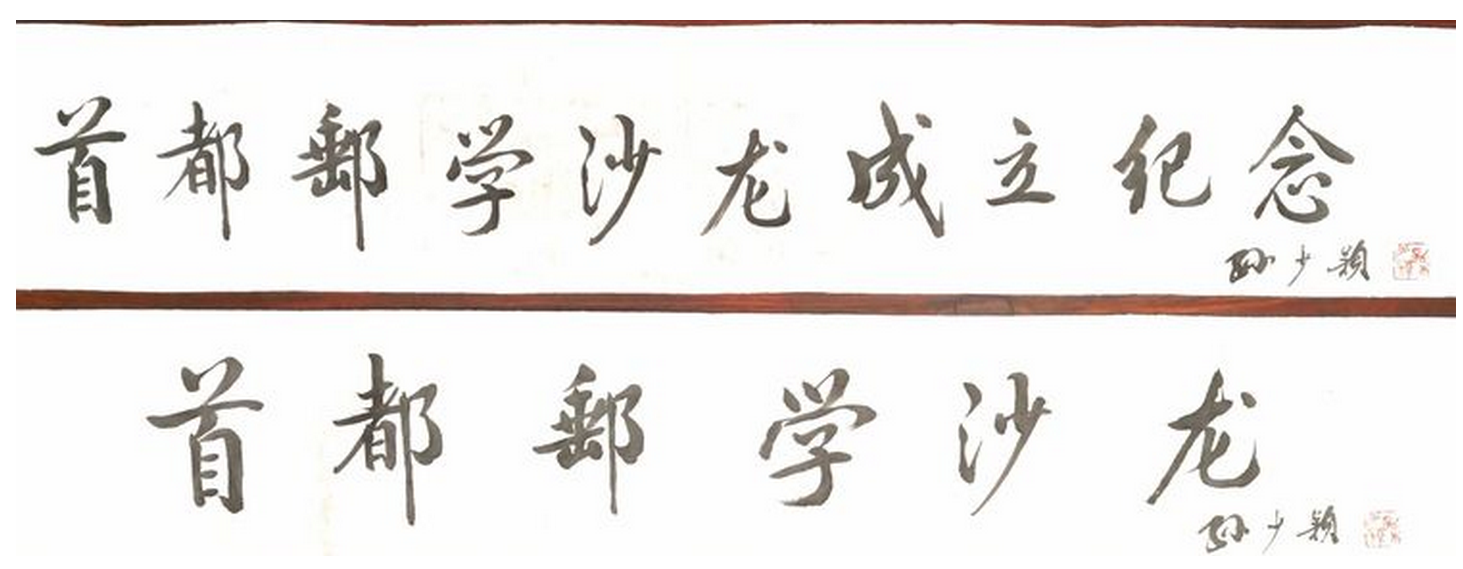 首都郵学沙龙成立纪念
孙少颖
首都郵学沙龙
孙少颖